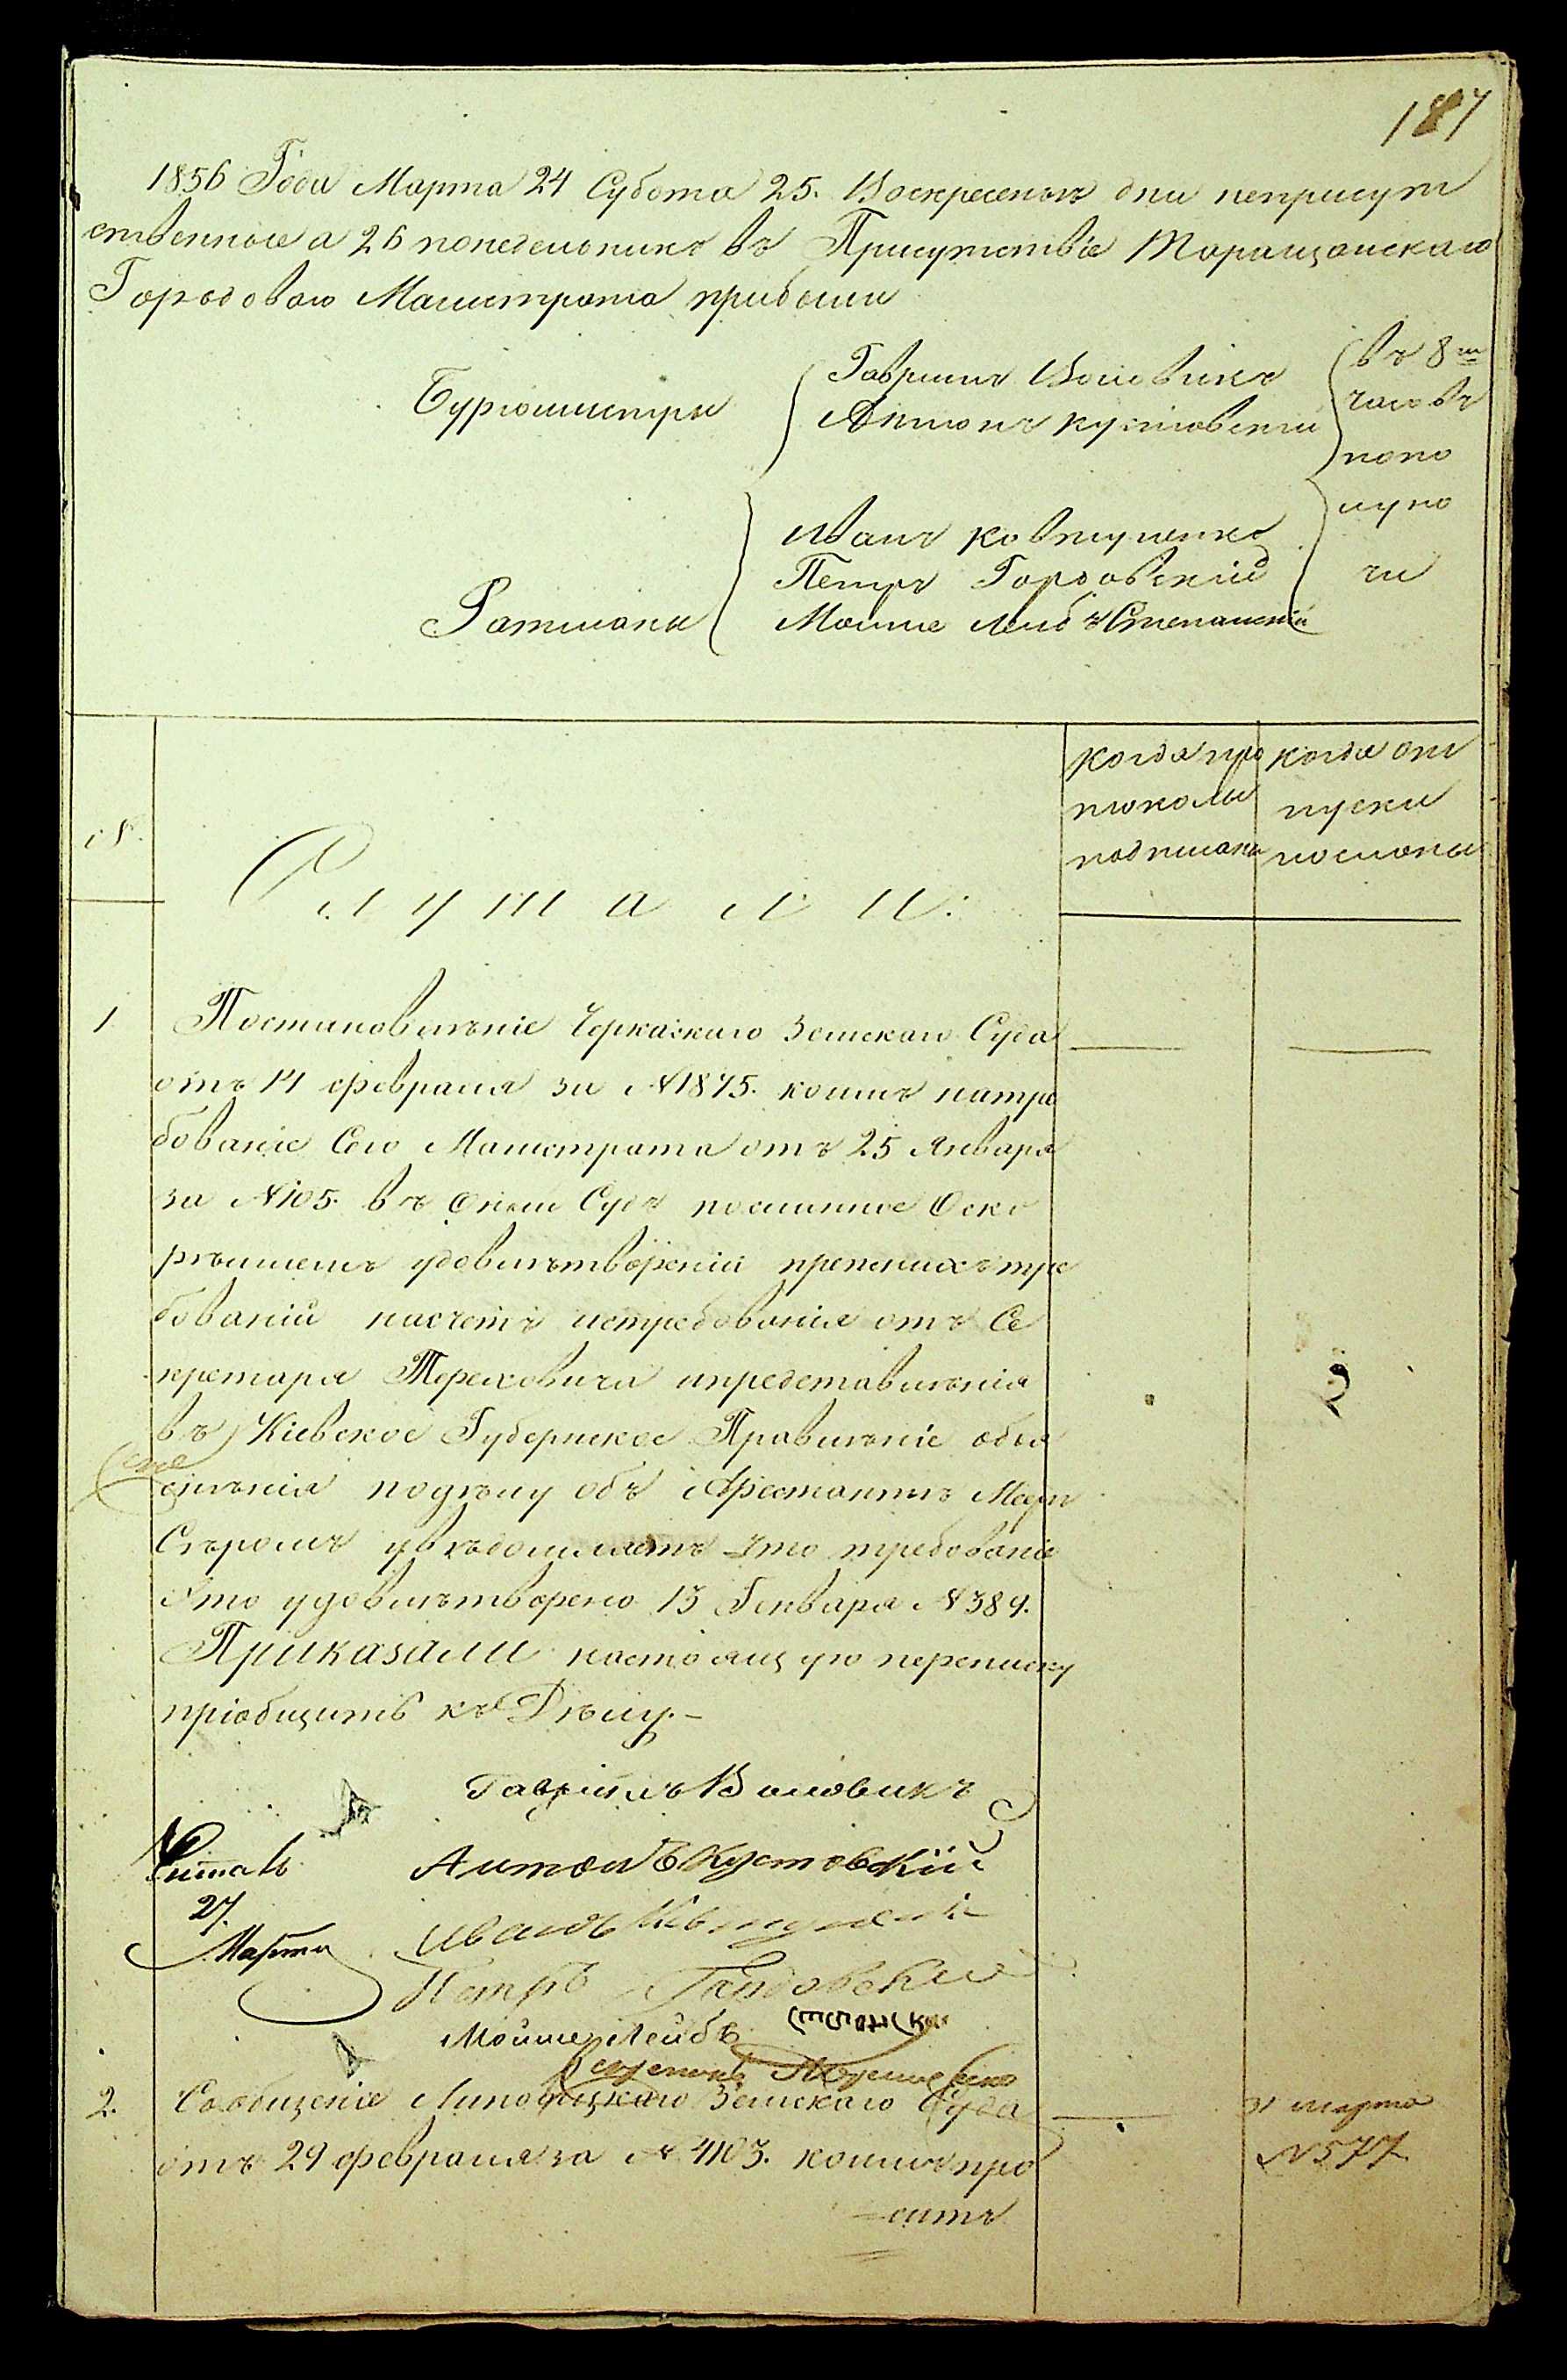 187
1856 Года Марта 24 Субота 25. Воскресенье дни неприсут
ственные а 26 понедельникъ въ Присутствіе Таращанскаго
Городоваго Магистрата прибыли
Бургомистры
Гаврiилъ Воловикъ
Антонъ Кустовскій
въ 8м
часовъ
попо
луно
чи
Ратманы
Иванъ Ковтуненко
Петръ Гордовскій
Мошне Лейбъ Степанскій
№.
Слушали:
когда про
токолы
подписаны
когда от
пуски
посланы
1
Постановленіе Черкаскаго Земскаго Суда
отъ 14 февраля за №1875. коимъ натре
бованіе Сего Магистрата отъ 25 Января
за №105. въ оный Судъ посланное Оско
рѣйшемъ удовлетвореніи прежнихъ тре
бованій насчетъ истребованія отъ Се
кретаря Тереховича ипредставленія
въ Кіевское Губернское Правленіе объя
сненія подѣлу объ Арестантѣ
увѣдомляетъ что требованіе
это удовлетворено 13 Генваря №389.
Приказали настоящую переписку
пріобщить къ Дѣлу.-
Гавріилъ Воловикъ
Читалъ
27.
Марта
Антонъ Кустовскій
Иванъ Ковтуненко
Петръ Гордовскій
Мойше Лейбъ
2.
Сообщеніе Липовецкаго Земскаго Суда
отъ 29 февраля за № 4103. коимъ про
31 марта
№577
-ситъ